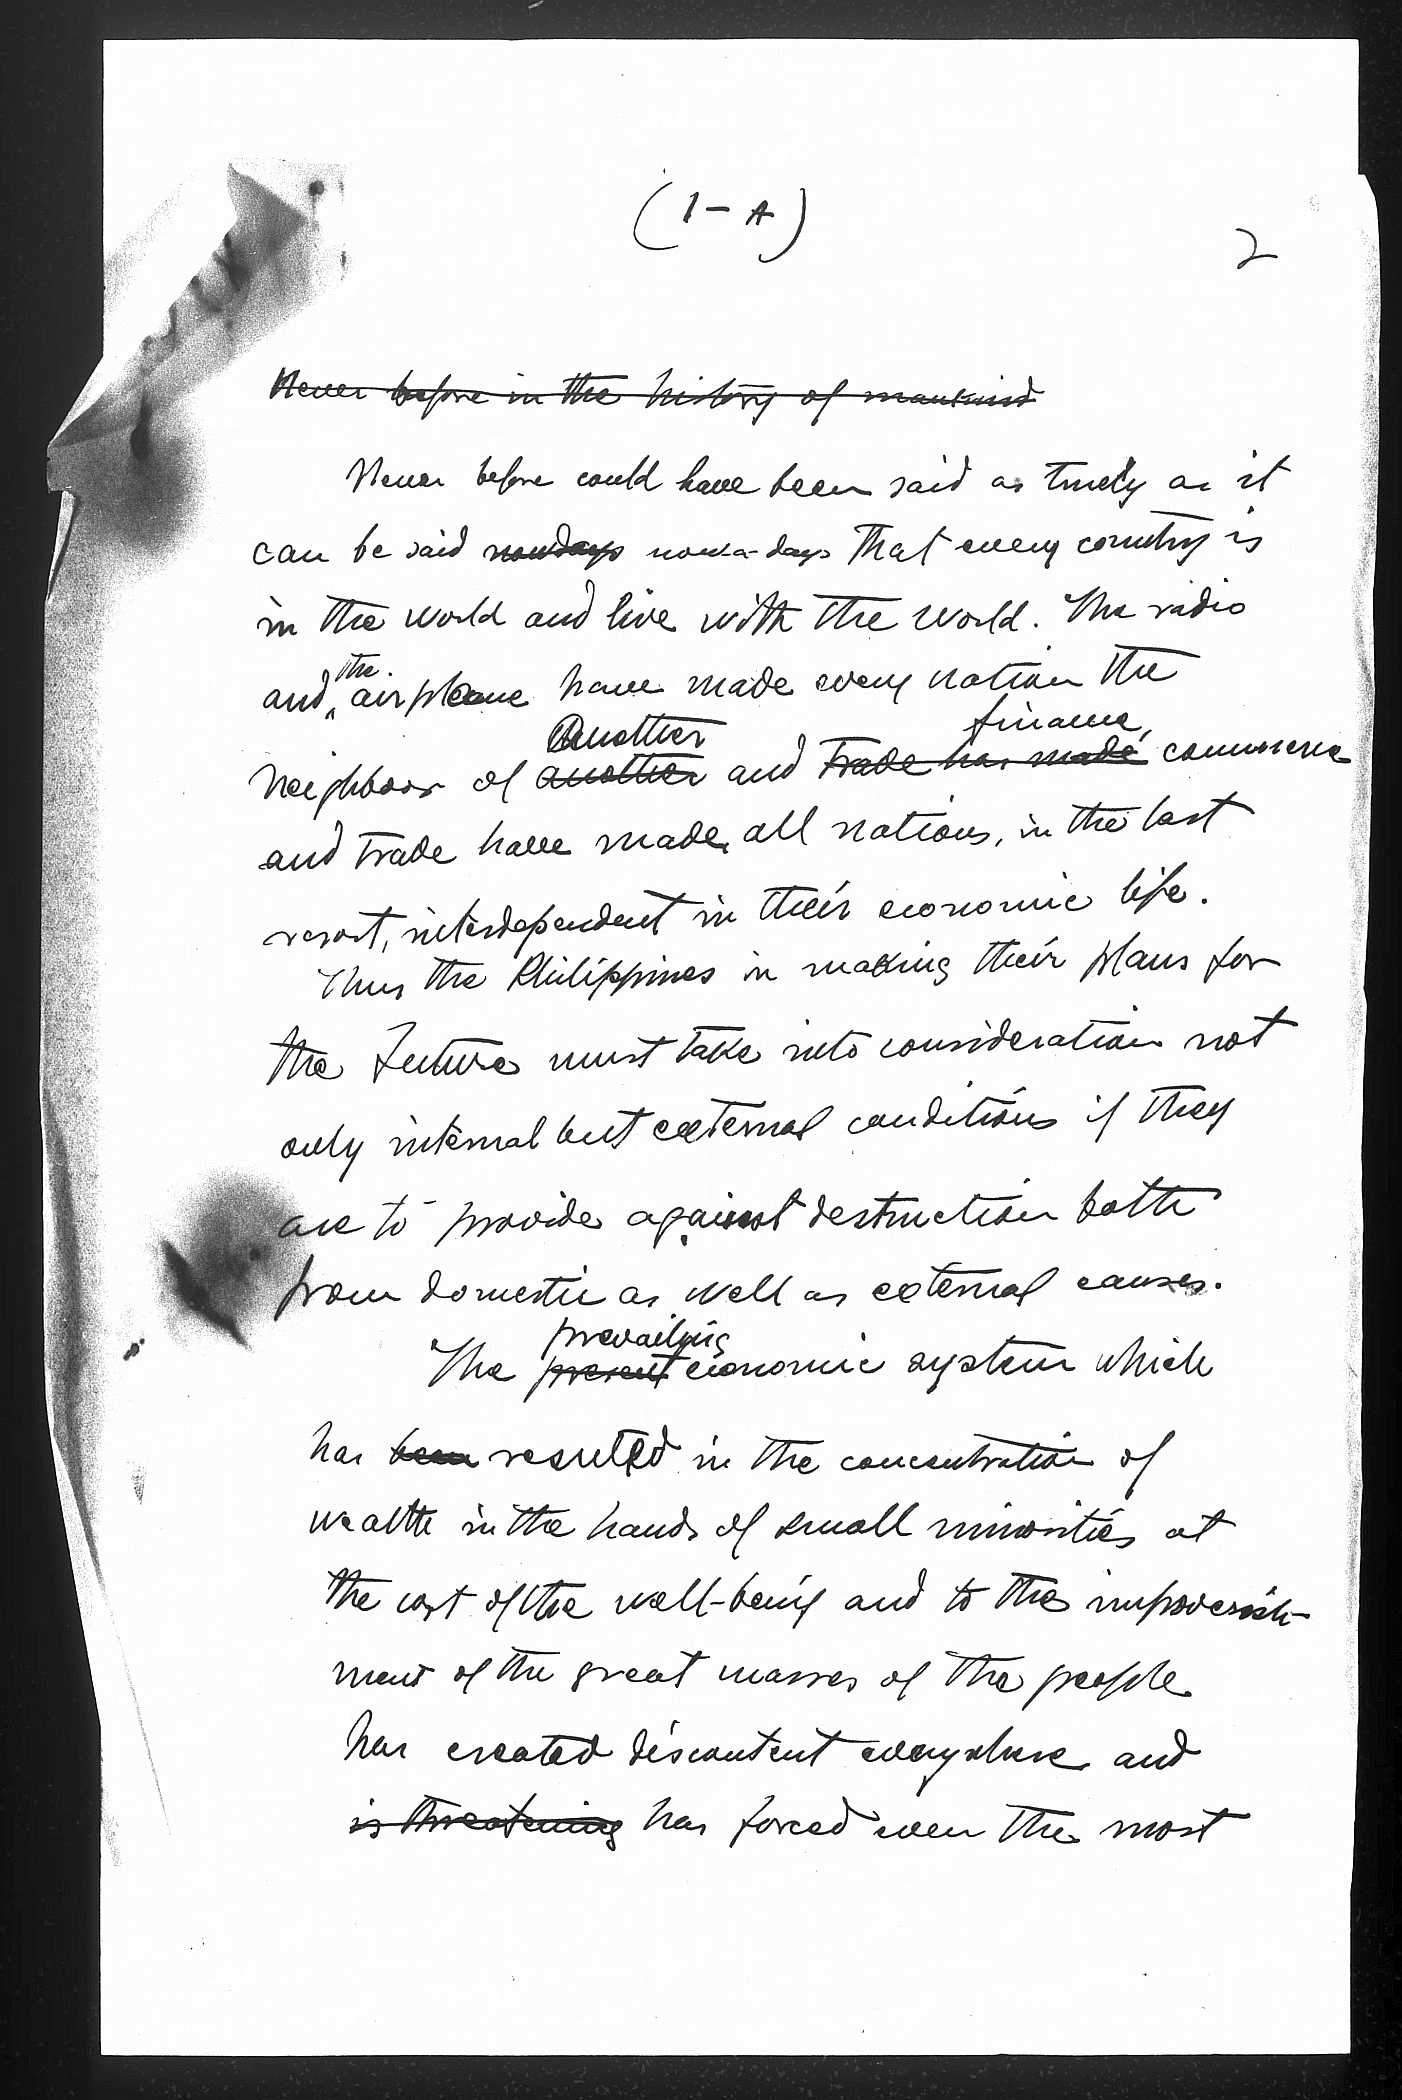 (1-A)
2
Never before in the history of mankind
Never before could have been said as truely as it
can be said nowdays now-a-days that every country is
in the world and live with the world. The radio
the
and airpleane have made every nation the
Another finance,
neighboor of another and trade has made commerce
and trade have made all nations, in the last
resort, interdependent in their economic life.
Thus the Philippines in making their plans for
the future must take into consideration not
only internal but external conditions if they
are to provide against destruction both
from domestic as well as external causes.
prevailing
The present economic system which
has been resulted in the concentration of
wealth in the hands of small minorities at
the cost of the well-being and to the impoverish-
ment of the great masses of the people
has created discontent everywhere and
is threatening has forced even the most